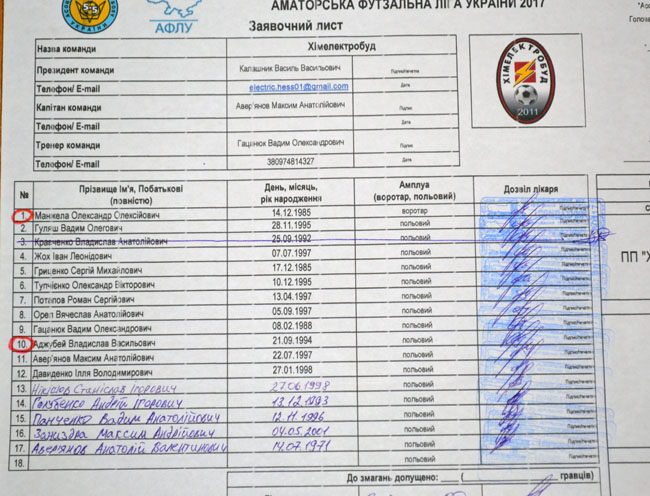 АМАТОРСЬКА ФУТЗАЛЬНА ЛІГА УКРАЇНИ 2017
АФЛУ
Заявочний лист
Назва команди Хімелектробуд
Президент команди Калашник Василь Васильович
Телефон/ E-mail electric.hess01@gmail.com Дата
Капітан команди Авер'янов Максим Анатолійович Підпис
Телефон/ E-mail Дата
Тренер команди Гаценюк Вадим Олександрович Підпис
Телефон/ E-mail 380974814327
ХІМЕЛЕКТРОБУД
2011
№ Прізвище Ім'я, Побатькові (повністю) День, місяць, рік народження Амплуа (воротар, польовий) Дозвіл лікаря
1. Манжела Олександр Олексійович 14.12.1985 воротар
2. Гуляш Вадим Олегович 28.11.1995 польовий
3. Кравченко Владислав Анатолійович 25.09.1992 польовий
4. Жох Іван Леонідович 07.07.1997 польовий
5. Гриценко Сергій Михайлович 17.12.1985 польовий
6. Тупчієнко Олександр Вікторович 10.12.1995 польовий
7. Потапов Роман Сергійович 13.04.1997 польовий
8. Орел Вячеслав Анатолійович 05.09.1997 польовий
9. Гаценюк Вадим Олександрович 08.02.1988 польовий
10. Аджубей Владислав Васильович 21.09.1994 польовий
11. Авер'янов Максим Анатолійович 22.07.1997 польовий
12. Давиденко Ілля Володимирович 27.01.1998 польовий
13. Нікісюв Станіслав Ігорович 27.06.1998 польовий
14. Голубенко Андрій Ігорович 13.12.1993 польовий
15. Панченко Вадим Анатолійович 12.11.1996 польовий
16. Заїздра Максим Андрійович 04.05.2001 польовий
17. Авер'янов Анатолій Валентинович 14.07.1971 польовий
18. польовий
До змагань допущено: ( гравців)
ПП "Х